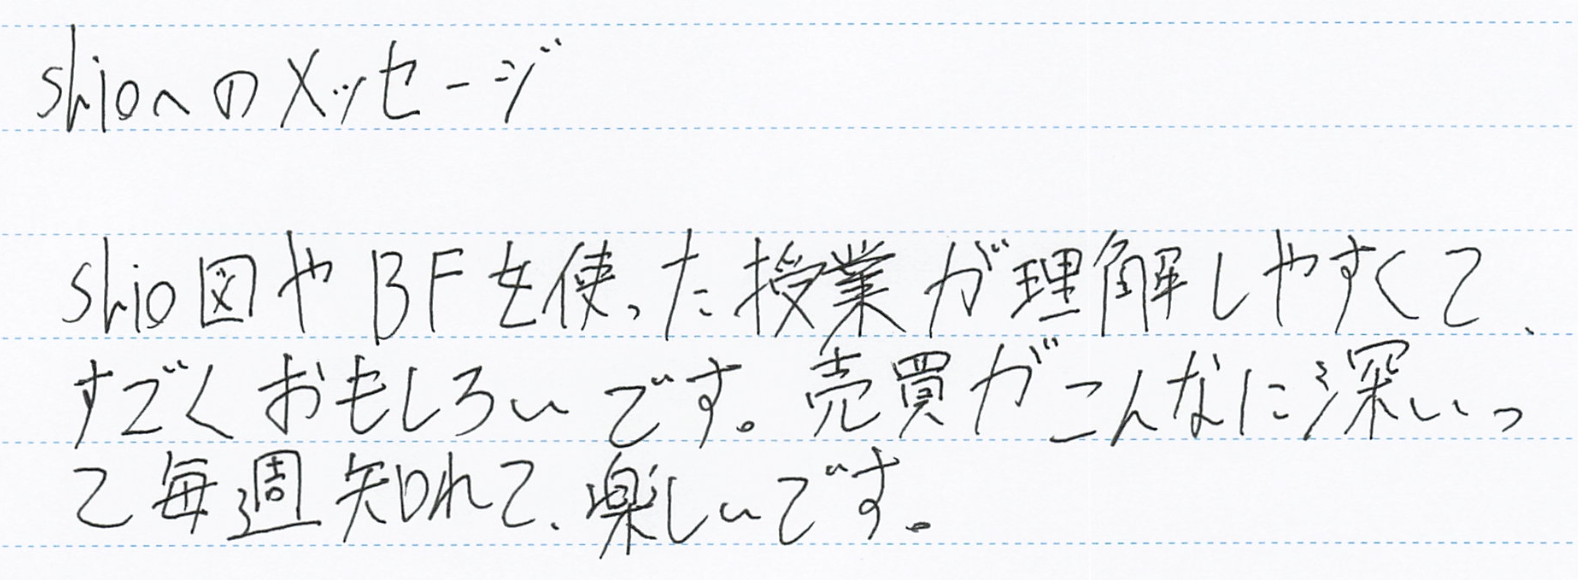 shioへのメッセージ
shio図やBFを使った授業が理解しやすくて、
すごくおもしろいです。売買がこんなに深いっ
て毎週知れて、楽しいです。